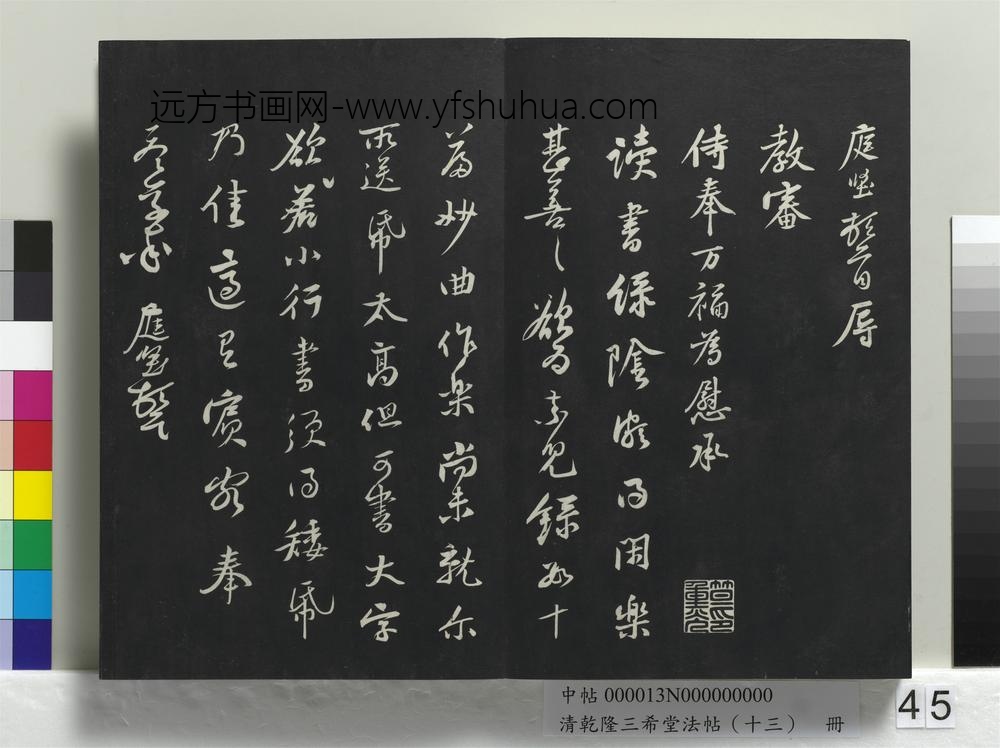 远方书画网-www.yfshuhua.com
庭堅頓首辱
教審
侍奉万福為慰承
讀書綠陰頗得閑樂
甚善甚善欲為索兒錄數十
篇妙曲作樂尚未就尔
所送紙太高但可書大字
欲若小行書須得矮紙
乃佳適有賓客奉
答草率 庭堅頓首
中帖 000013N000000000
清乾隆三希堂法帖（十三） 冊
45